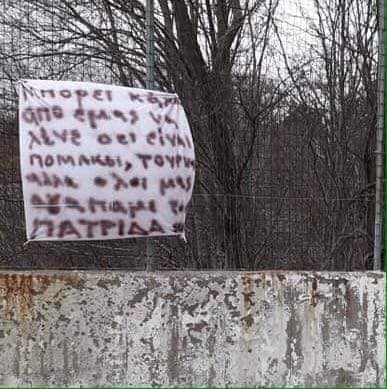 ΜΠΟΡΕΙ
απο εμας να
λενε οτι ειναι
ΠΟΜΑΚΟΙ, ΤΟΥΡΚ
αλλα ολοι μας
αγαπαμε
ΠΑΤΡΙΔΑ